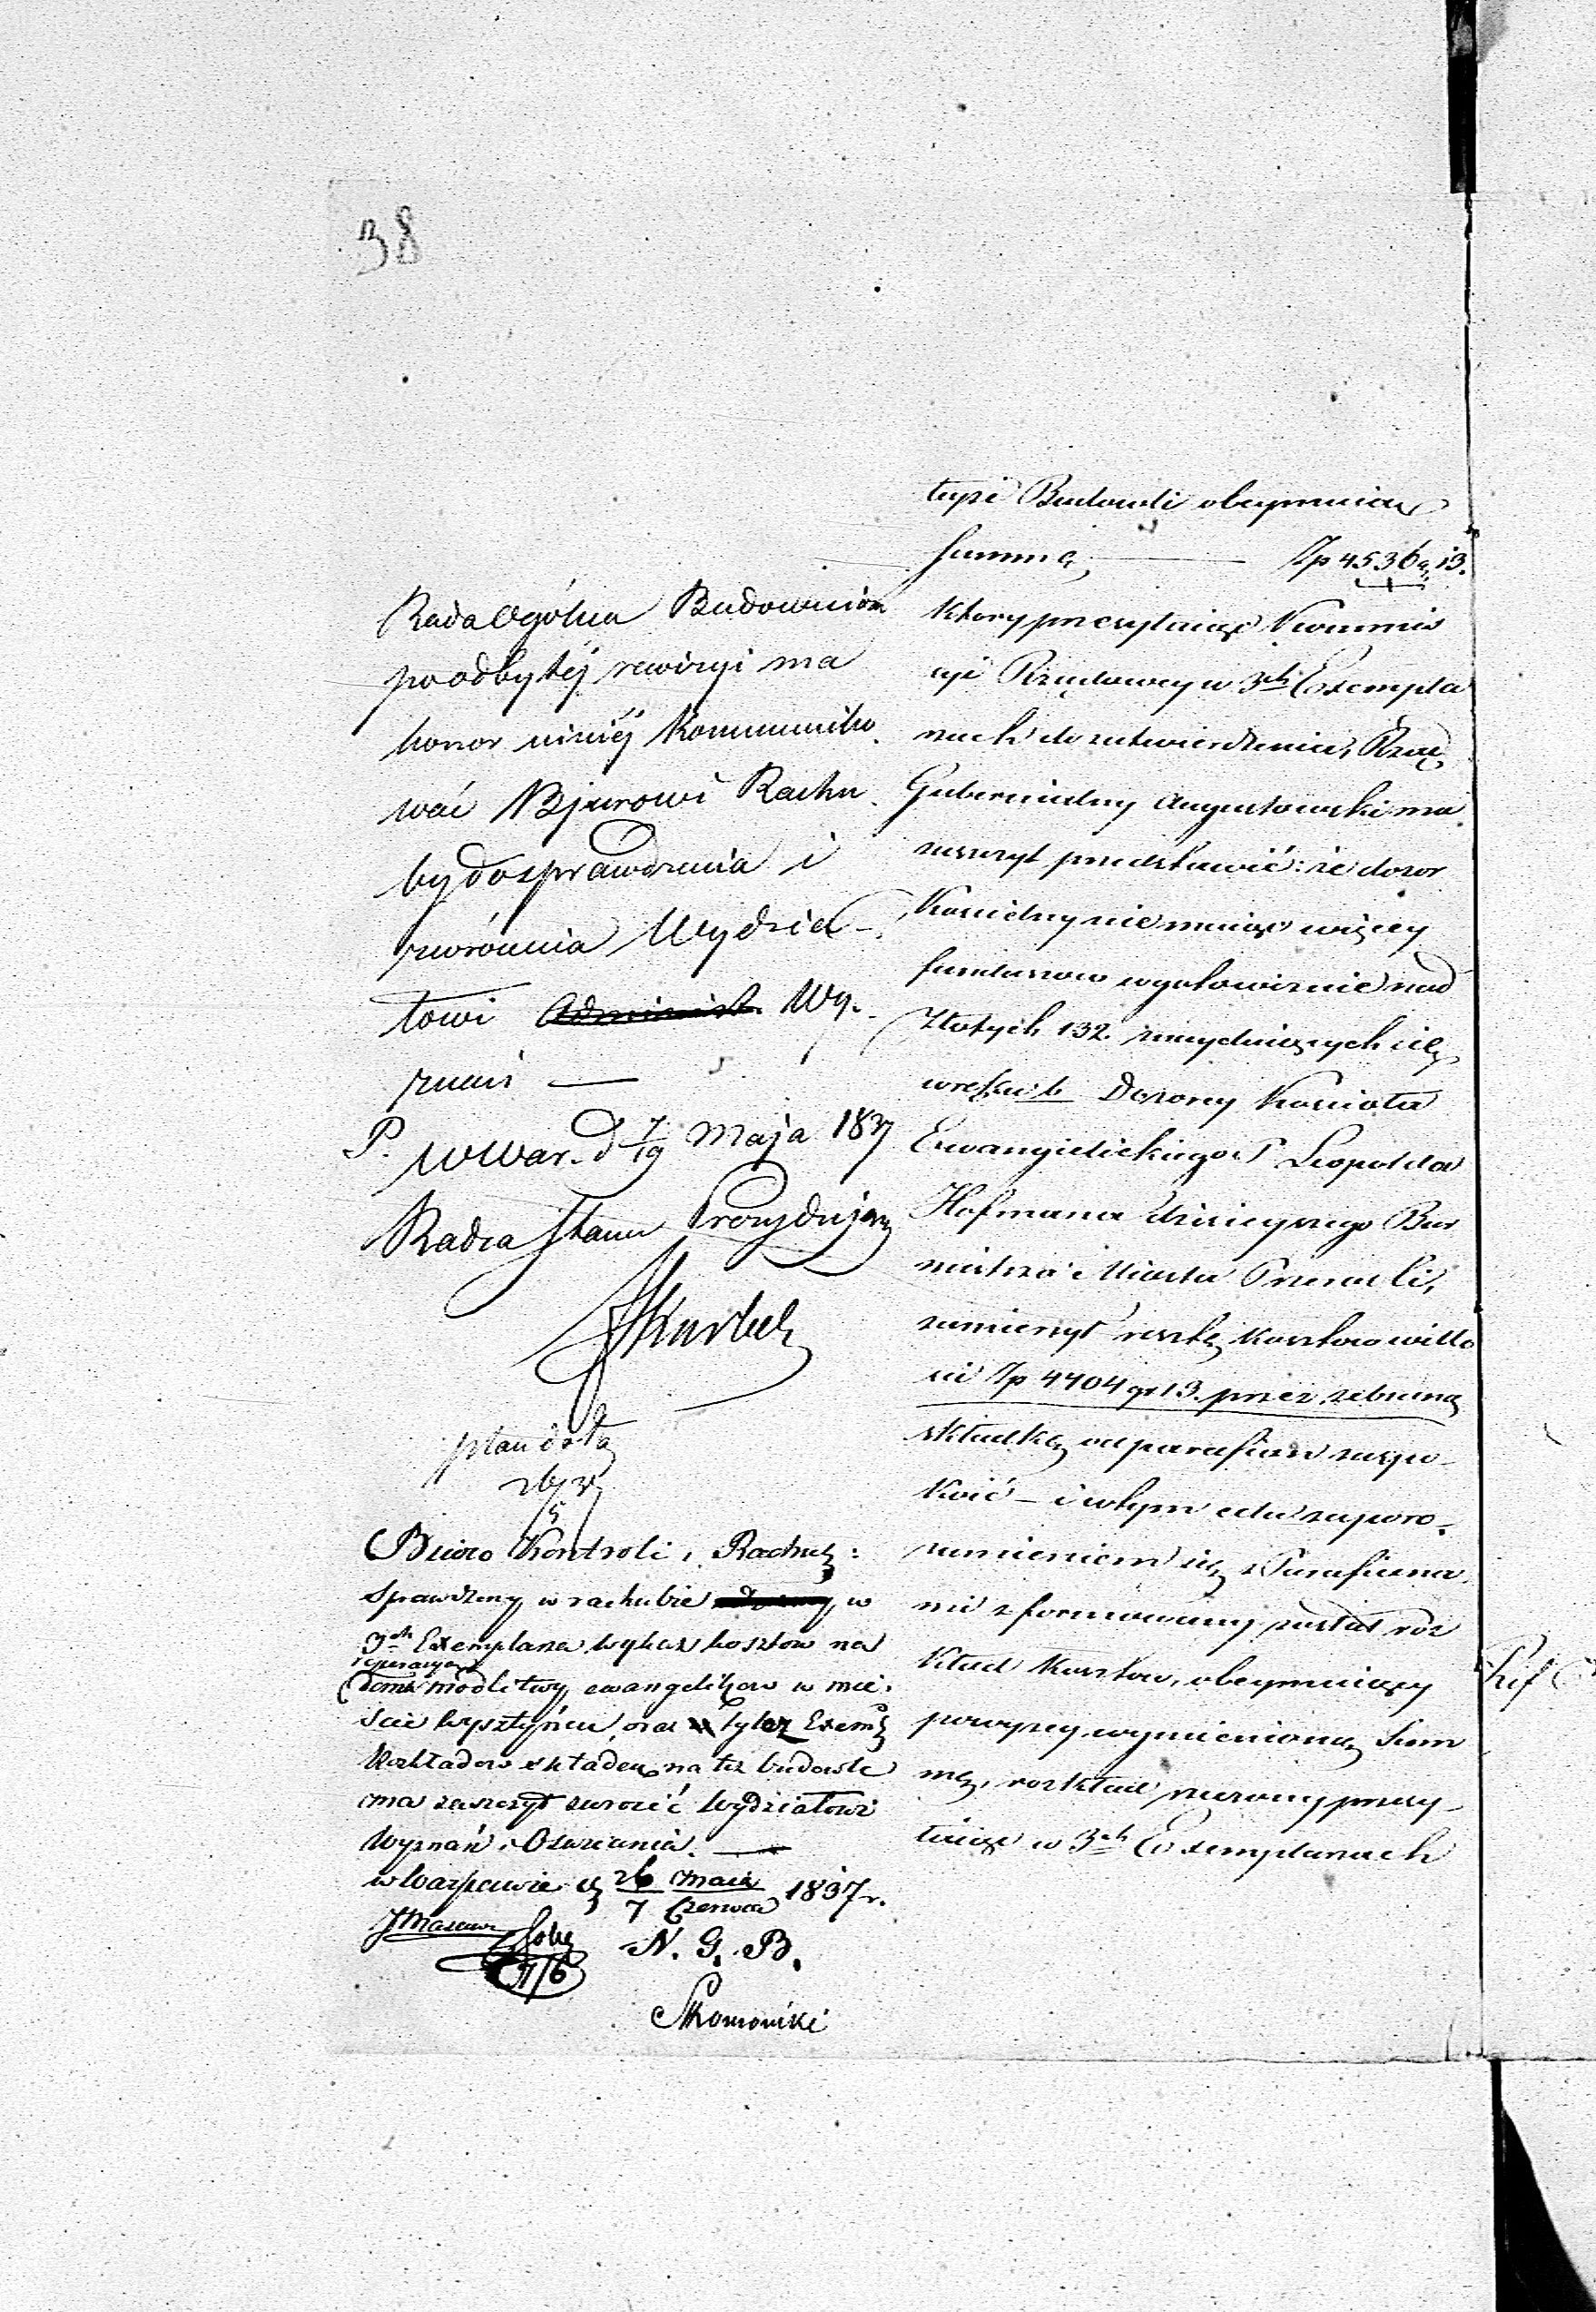 38
Rada Ogólna Budownicza
po odbytéj rewizyi ma
honor niniéj Kommuniko
wać Bjurowi Rachu
by do sprawdzenia i
zwrócenia Wydzia-
łowi Administ. Wy-
znań —
P. w War. d 7/19 Maja 1837
Radca Stanu Prezydujący
plan i
26/
5
Biuro Kontroli i Rachu:
Sprawdzony w rachubie w
3ch Exemplarza wykaz kosztów na
reperacyą
domu modlitwy ewangelików w mie-
ście Wysztyńcu, oraz tyleż Exem
Rozkładów składek na też budowle
ma zaszczyt zwrócić Wydziałowi
Wyznań i Oświecenia. —
w Warszawie d 26 Maja / 7 Czerwca 1837 r.
7/6
N. G. B.
tejże Budowli obeymuiący
Summę, — Zp 4536 g 13.
który przesyłaiąc Kommis
syi Rządowey w 3ch Exempla
rzach do zatwierdzenia, Rząd
Gubernialny Augustowski ma
zaszczyt przedstawić: że dozor
Kościelny nie maiąc więcey
funduszow w gotowiznie nad
Złotych 132. znayduiących się
w ręku b. Dozorcy Kościoła
Ewangielickiego P Leopolda
Hofmana dzisieyszego Bur
mistrza Miasta Przerośli,
zamierzył resztę kosztow w ilo
ści Zp 4404 gr 13. przez zebraną
składkę od parafian zaspo-
koić — i w tym celu za poro-
zumieniem się z Parafiana
mi z formowany został roz
kład kosztow, obeymuiący
powyzey wymienioną Sum
mę, rozkład rzeczony przesy-
łaiąc w 3ch Exemplarzach